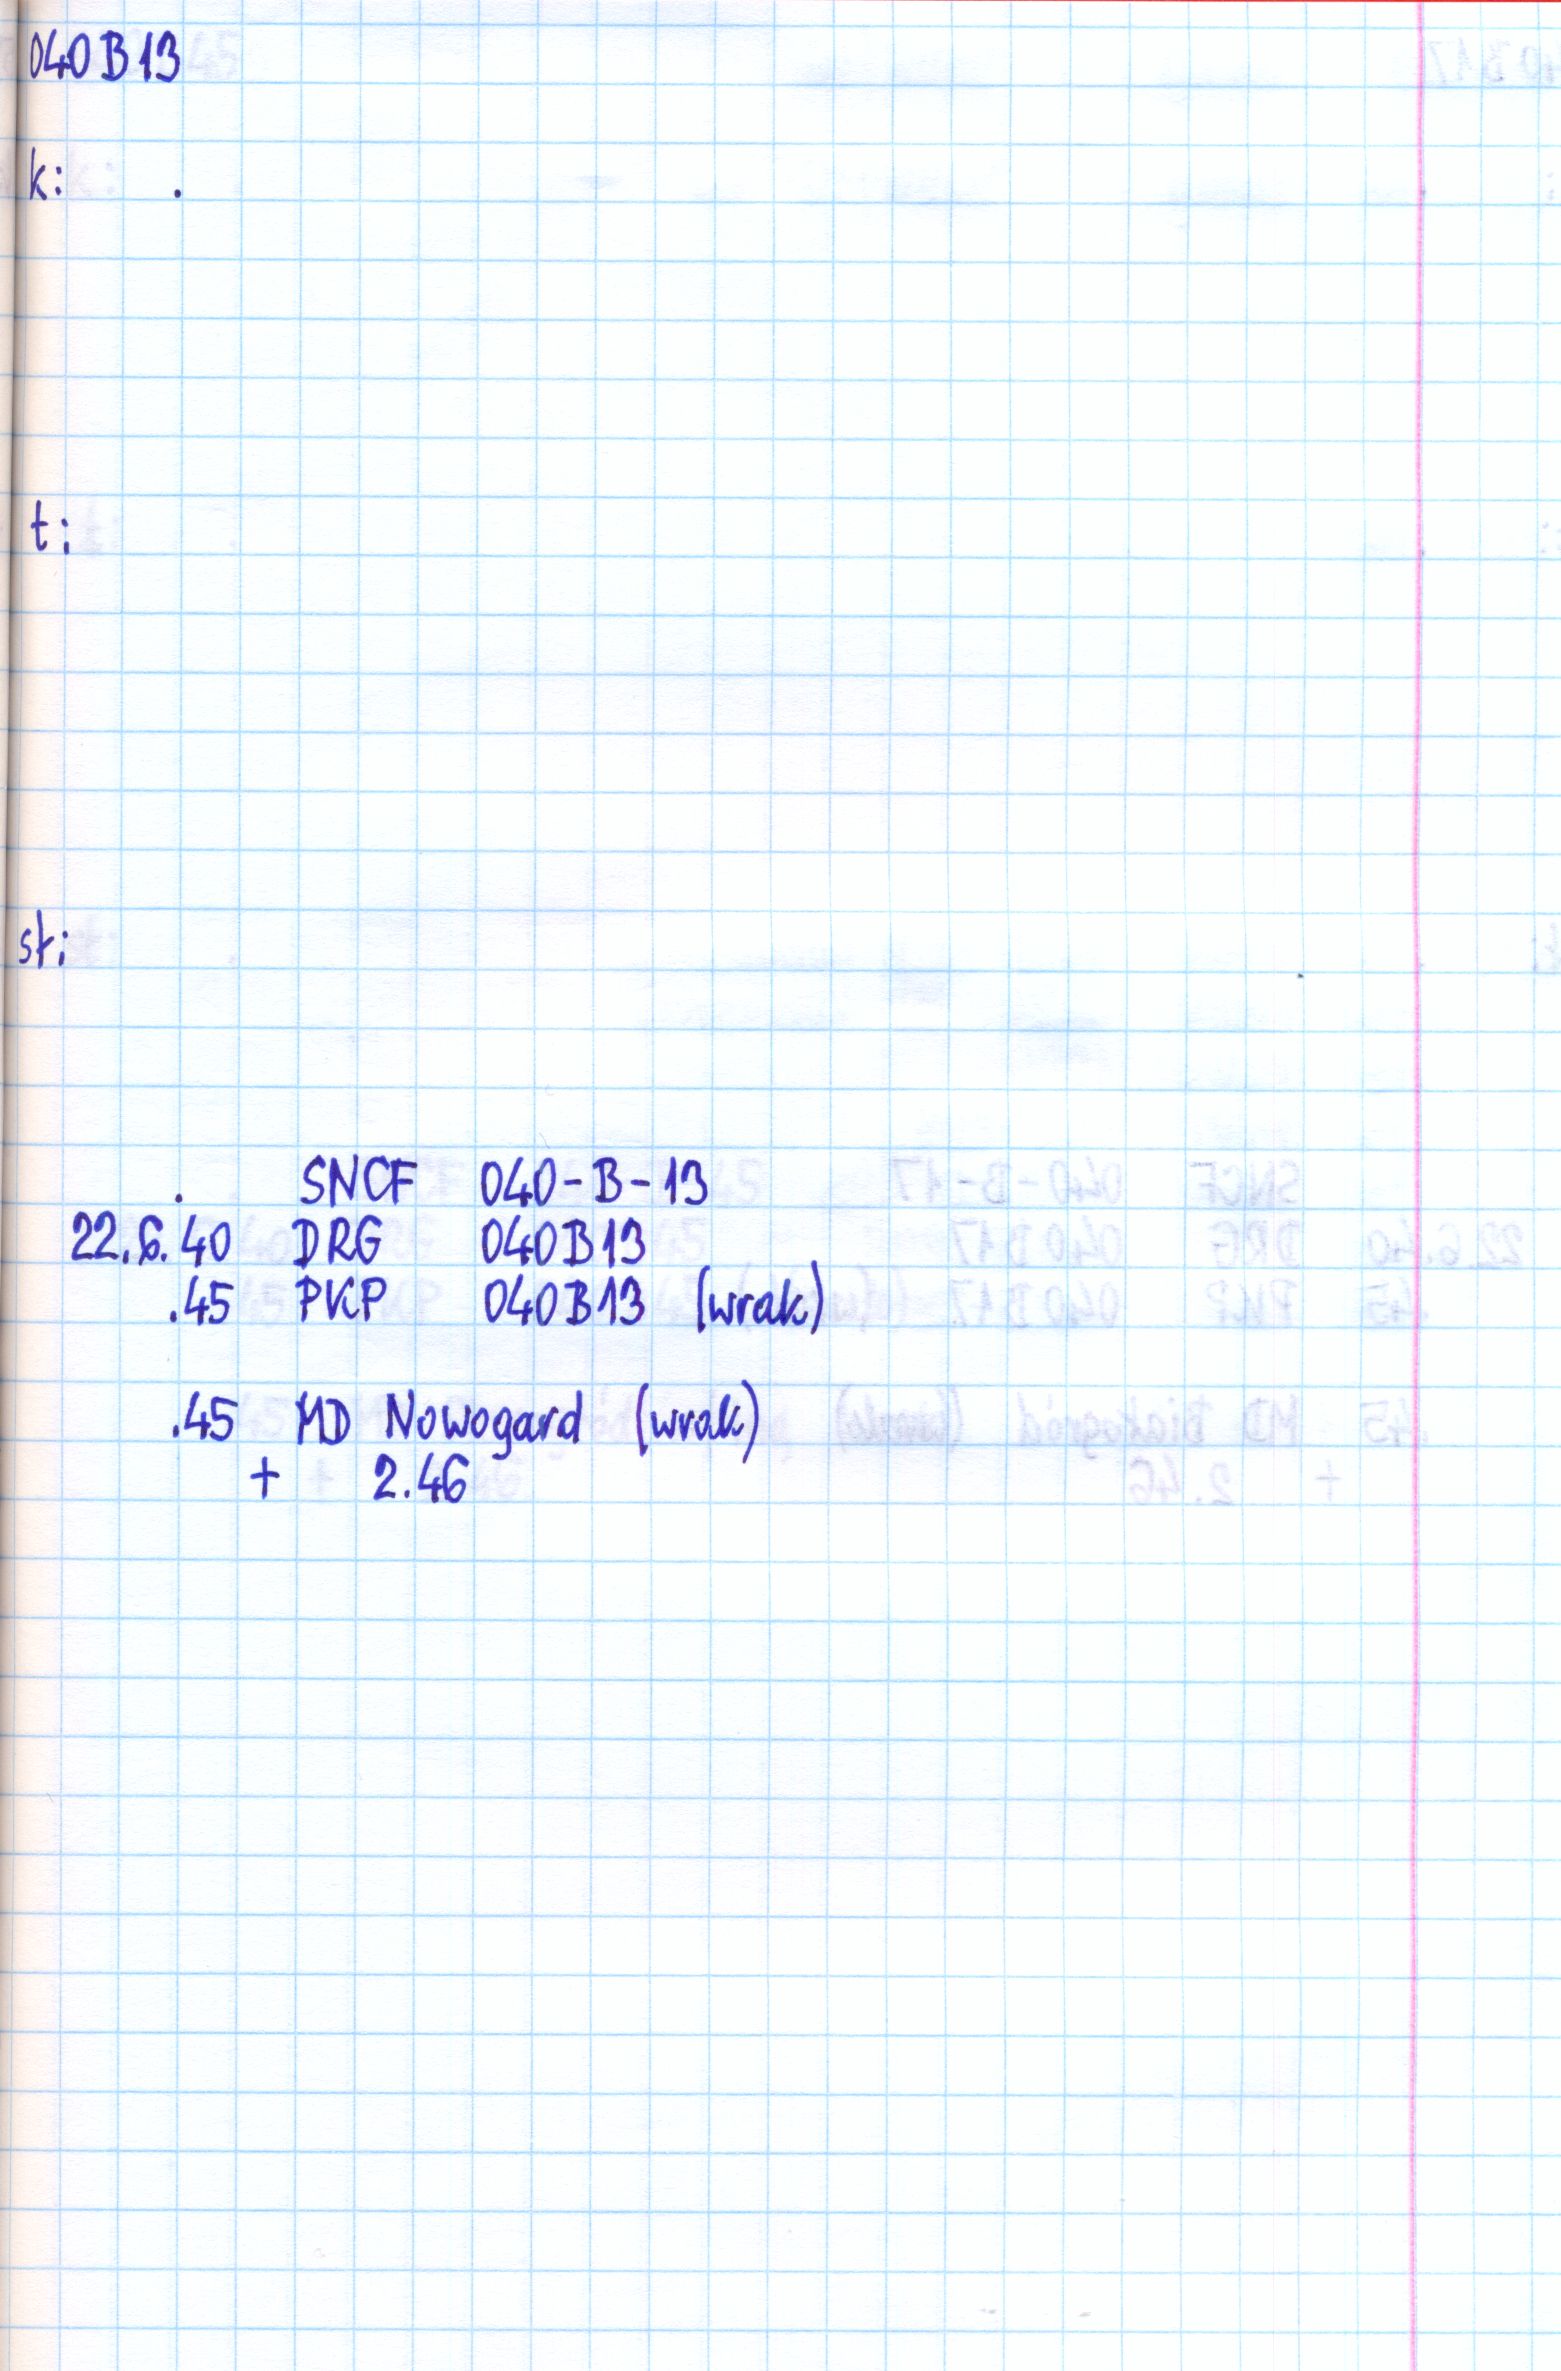 040B13
k: .
t:
st:
. SNCF 040-B-13
22.6.40 DRG 040B13
.45 PKP 040B13 (wrak)
.45 MD Nowogard (wrak)
+ 2.46